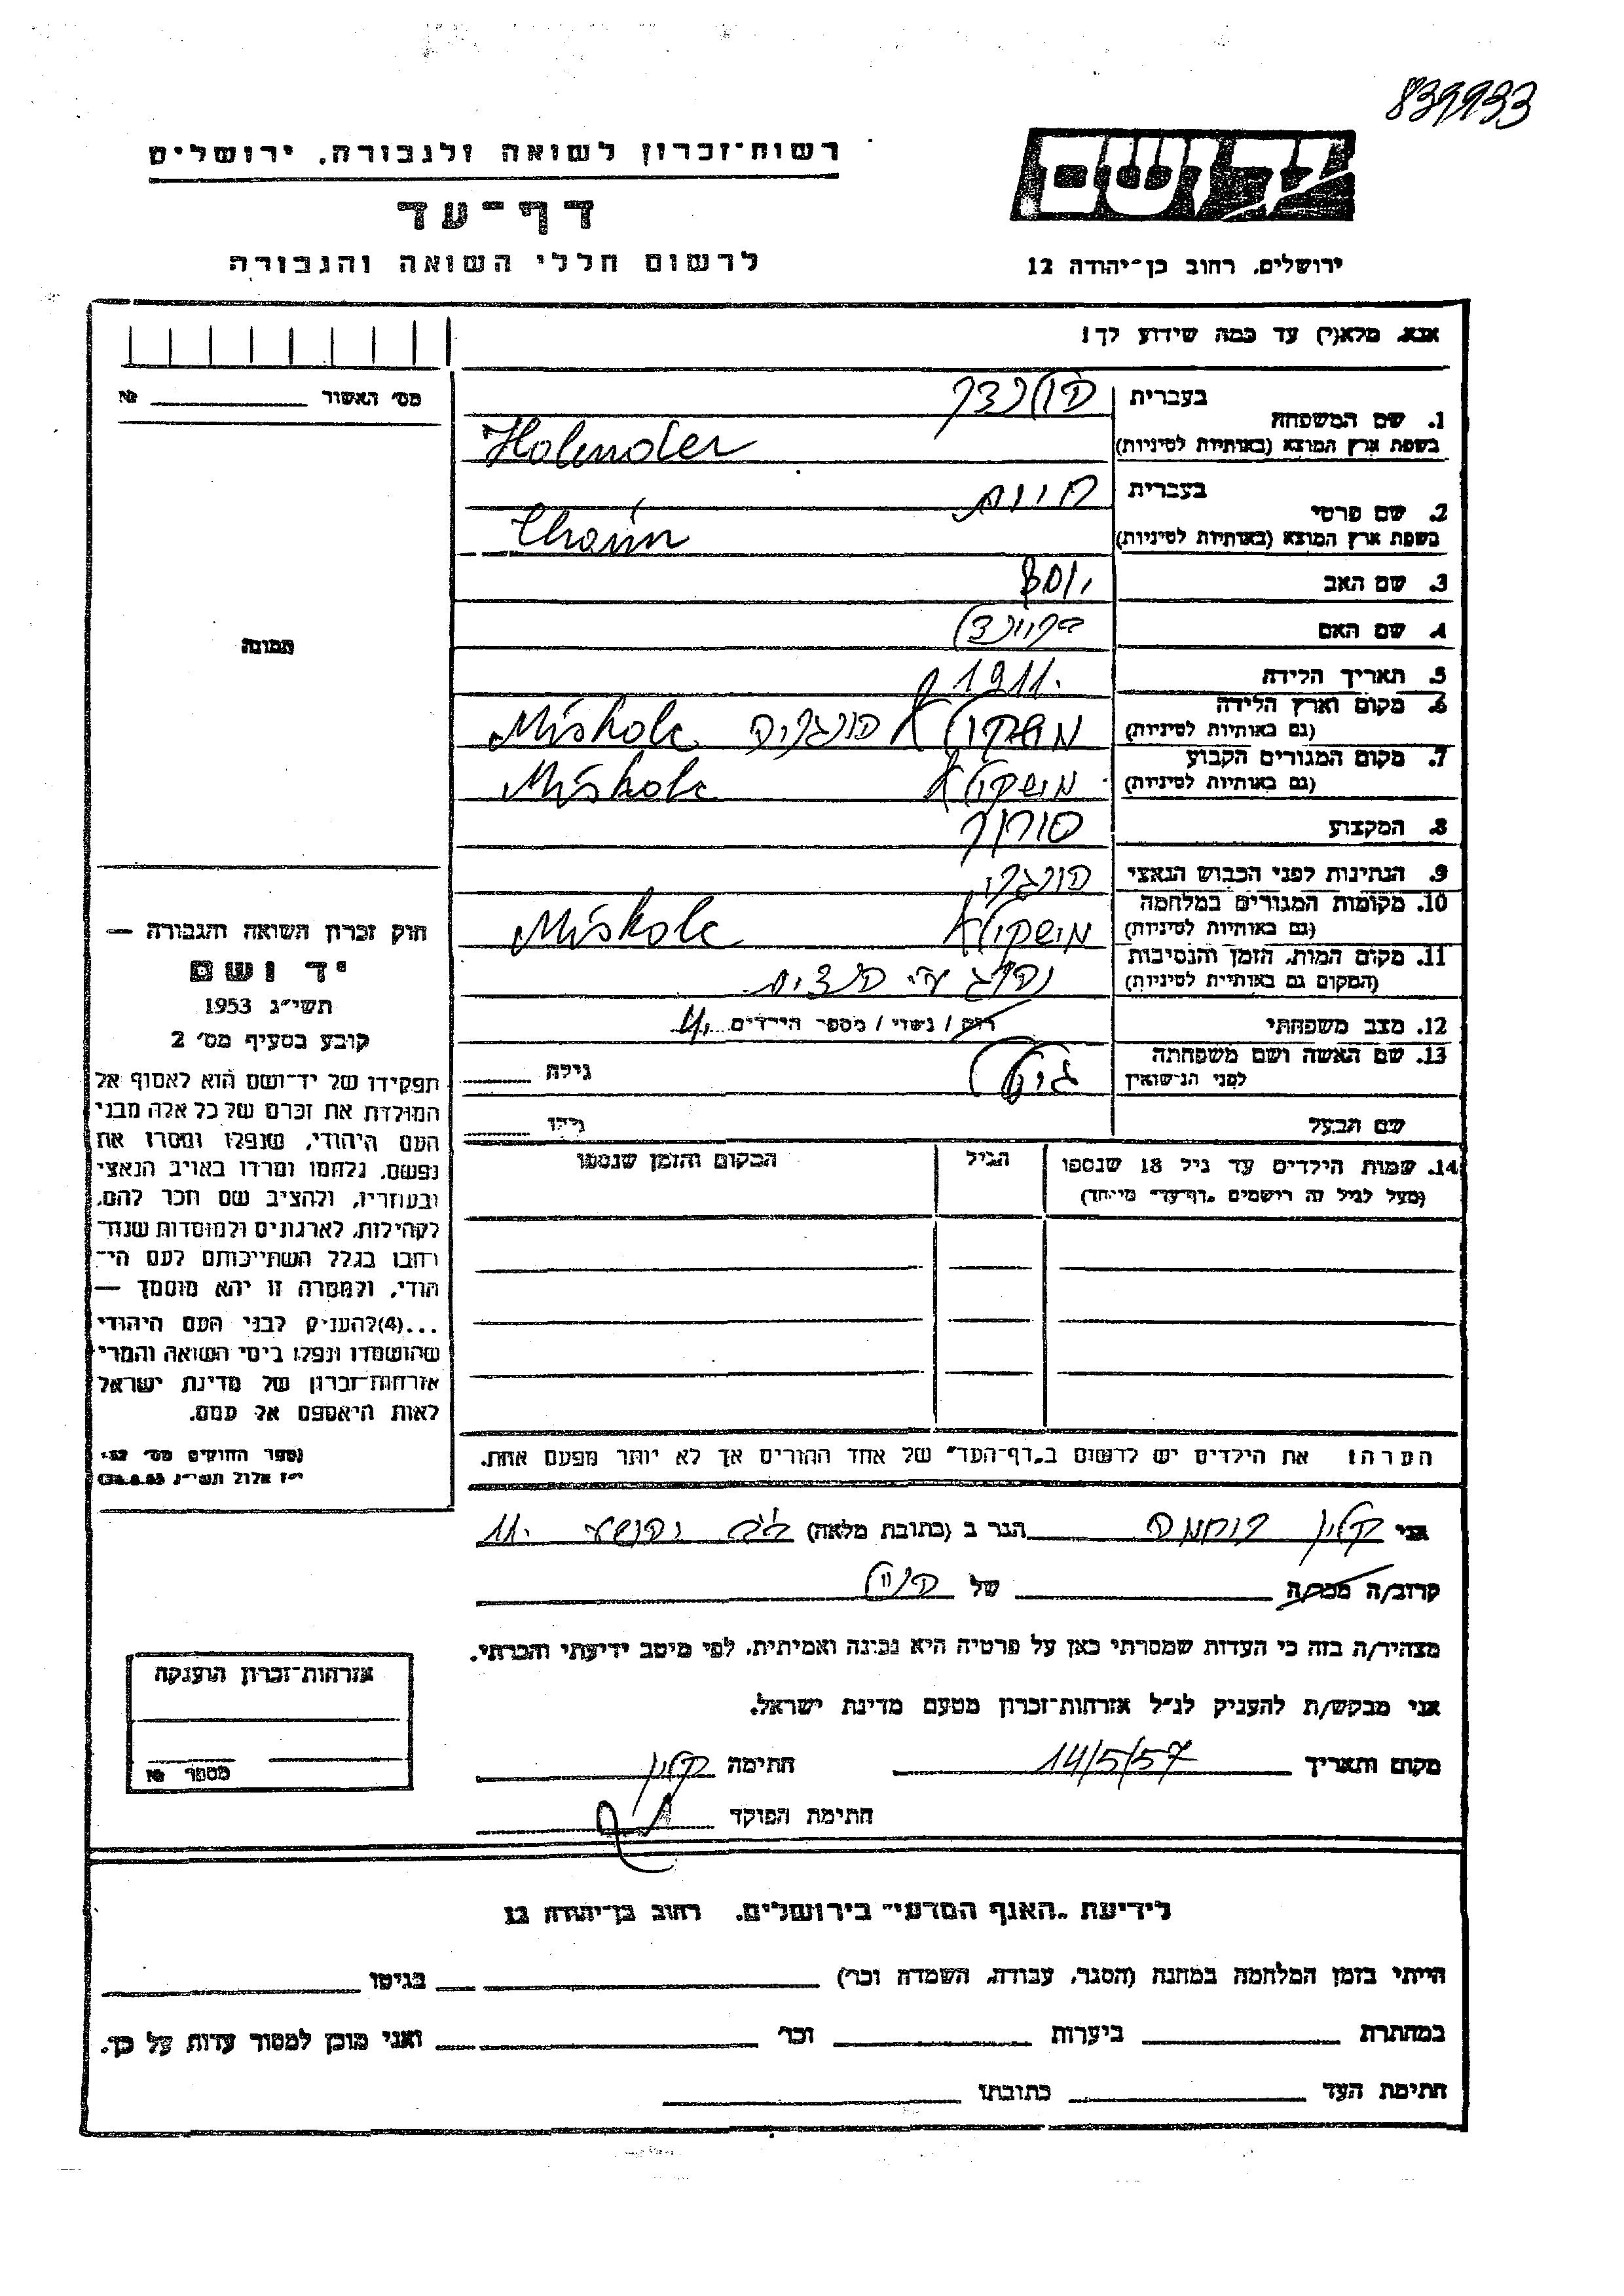 839933
רשות־זכרון לשואה ולגבורה, ירושלים
דף־עד
לרשום חללי השואה והגבורה
יד ושם
ירושלים, רחוב בן־יהודה 12
אנא, מלא(י) עד כמה שידוע לך!
מס׳ האשור № 
1. שם המשפחה
בעברית הולנדר
בשפת ארץ המוצא (באותיות לטיניות) Holender
2. שם פרטי
בעברית חיים
בשפת ארץ המוצא (באותיות לטיניות) Chaim
3. שם האב יוסף
4. שם האם
5. תאריך הלידה 1911.
6. מקום וארץ הלידה
(גם באותיות לטיניות) מישקולץ הונגריה Miskolc
7. מקום המגורים הקבוע
(גם באותיות לטיניות) מישקולץ Miskolc
8. המקצוע סוחר
9. הנתינות לפני הכבוש הנאצי הונגרי
10. מקומות המגורים במלחמה
(גם באותיות לטיניות) מישקולץ Miskolc
11. מקום המות, הזמן והנסיבות
(המקום גם באותיות לטיניות) נהרג ע״י הנצים
12. מצב משפחתי רוק / נשוי / מספר הילדים
13. שם האשה ושם משפחתה
לפני הנישואין
גילה
שם הבעל
גילו
14. שמות הילדים עד גיל 18 שנספו
(מעל לגיל זה רושמים „דף־עד״ מיוחד)
הגיל
המקום והזמן שנספו
הערה: את הילדים יש לרשום ב„דף־העד״ של אחד ההורים אך לא יותר מפעם אחת.
תמונה
חוק זכרון השואה והגבורה —
יד ושם
תשי״ג 1953
קובע בסעיף מס׳ 2
תפקידו של יד־ושם הוא לאסוף אל
המולדת את זכרם של כל אלה מבני
העם היהודי, שנפלו ומסרו את
נפשם, נלחמו ומרדו באויב הנאצי
ובעוזריו, ולהציב שם וזכר להם,
לקהילות, לארגונים ולמוסדות שנח־
רבו בגלל השתייכותם לעם הי־
הודי, ולמטרה זו יהא מוסמך —
...(4)להעניק לבני העם היהודי
שהושמדו ונפלו בימי השואה והמרי
אזרחות־זכרון של מדינת ישראל
לאות היאספם אל עמם.
(ספר החוקים מס׳ 132,
י״ז אלול תשי״ג 28.8.53)
אני קליין נחמה הגר ב (כתובת מלאה)
קרוב/ה מכר/ה של
מצהיר/ה בזה כי העדות שמסרתי כאן על פרטיה היא נכונה ואמיתית, לפי מיטב ידיעתי והכרתי.
אני מבקש/ת להעניק לנ״ל אזרחות־זכרון מטעם מדינת ישראל.
מקום ותאריך 14/5/57 חתימה קליין
חתימת הפוקד
אזרחות־זכרון הוענקה
מספר №
לידיעת „האגף המדעי״ בירושלים, רחוב בן־יהודה 12
הייתי בזמן המלחמה במחנה (הסגר, עבודה, השמדה וכו׳) בגיטו
במחתרת ביערות וכו׳ ואני מוכן למסור עדות על כך.
חתימת העד כתובתו